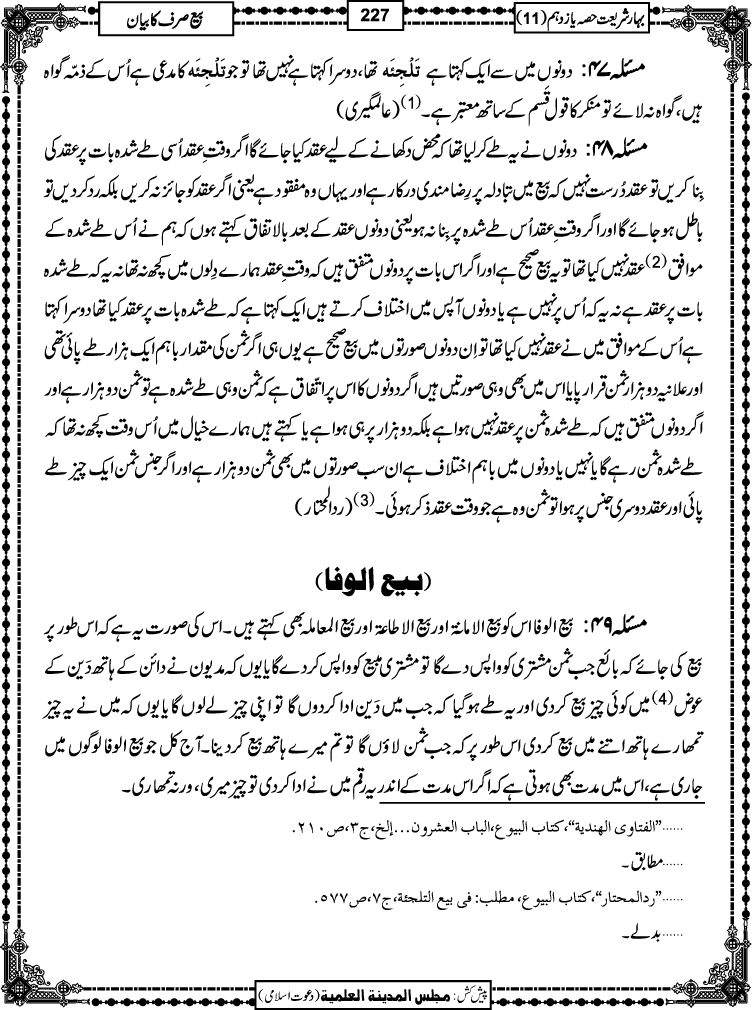 بہار شریعت حصہ یازدہم (11)
227
بیع صرف کا بیان
مسئلہ ۴۷: دونوں میں سے ایک کہتا ہے تَلْجِئَہ تھا، دوسرا کہتا ہے نہیں تھا تو جو تَلْجِئَہ کا مدعی ہے اُس کے ذمّہ گواہ
ہیں، گواہ نہ لائے تو منکر کا قول قَسم کے ساتھ معتبر ہے۔(1) (عالمگیری)
مسئلہ ۴۸: دونوں نے یہ طے کرلیا تھا کہ محض دکھانے کے لیے عقد کیا جائے گا اگر وقتِ عقد اُسی طے شدہ بات پر عقد کی
بِنا کریں تو عقد دُرست نہیں کہ بیع میں تبادلہ پر رِضا مندی درکار ہے اور یہاں وہ مفقود ہے یعنی اگر عقد کو جائز نہ کریں بلکہ رد کردیں تو
باطل ہو جائے گا اور اگر وقتِ عقد اُس طے شدہ پر بِنا نہ ہو یعنی دونوں عقد کے بعد بالاتفاق کہتے ہوں کہ ہم نے اُس طے شدہ کے
موافق(2) عقد نہیں کیا تھا تو یہ بیع صحیح ہے اور اگر اس بات پر دونوں متفق ہیں کہ وقتِ عقد ہمارے دِلوں میں کچھ نہ تھا نہ یہ کہ طے شدہ
بات پر عقد ہے نہ یہ کہ اُس پر نہیں ہے یا دونوں آپس میں اختلاف کرتے ہیں ایک کہتا ہے کہ طے شدہ بات پر عقد کیا تھا دوسرا کہتا
ہے اُس کے موافق میں نے عقد نہیں کیا تھا تو اِن دونوں صورتوں میں بیع صحیح ہے یوں ہی اگر ثمن کی مقدار باہم ایک ہزار طے پائی تھی
اور علانیہ دو ہزار ثمن قرار پایا اس میں بھی وہی صورتیں ہیں اگر دونوں کا اس پر اتّفاق ہے کہ ثمن وہی طے شدہ ہے تو ثمن دو ہزار ہے اور
اگر دونوں متفق ہیں کہ طے شدہ ثمن پر عقد نہیں ہوا ہے بلکہ دو ہزار پر ہی ہوا ہے یا کہتے ہیں ہمارے خیال میں اُس وقت کچھ نہ تھا کہ
طے شدہ ثمن رہے گا یا نہیں یا دونوں میں باہم اختلاف ہے ان سب صورتوں میں بھی ثمن دو ہزار ہے اور اگر جنس ثمن ایک چیز طے
پائی اور عقد دوسری جنس پر ہوا تو ثمن وہ ہے جو وقت عقد ذکر ہوئی۔(3) (ردالمحتار)
(بیع الوفا)
مسئلہ ۴۹: بیع الوفا اس کو بیع الامانۃ اور بیع الاطاعۃ اور بیع المعاملہ بھی کہتے ہیں۔ اس کی صورت یہ ہے کہ اس طور پر
بیع کی جائے کہ بائع جب ثمن مشتری کو واپس دے گا تو مشتری مبیع کو واپس کر دے گا یا یوں کہ مدیون نے دائن کے ہاتھ دَین کے
عوض(4) میں کوئی چیز بیع کردی اور یہ طے ہو گیا کہ جب میں دَین ادا کر دوں گا تو اپنی چیز لے لوں گا یا یوں کہ میں نے یہ چیز
تمھارے ہاتھ اتنے میں بیع کر دی اس طور پر کہ جب ثمن لاؤں گا تو تم میرے ہاتھ بیع کر دینا۔ آج کل جو بیع الوفا لوگوں میں
جاری ہے، اس میں مدت بھی ہوتی ہے کہ اگر اس مدت کے اندر یہ رقم میں نے ادا کر دی تو چیز میری، ورنہ تمھاری۔
......"الفتاوی الھندیۃ"، کتاب البیوع، الباب العشرون...إلخ، ج۳، ص۲۱۰.
......مطابق۔
......"ردالمحتار"، کتاب البیوع، مطلب: فی بیع التلجئۃ، ج۷، ص۵۷۷.
......بدلے۔
پیش کش: مجلس المدینۃ العلمیۃ (دعوت اسلامی)